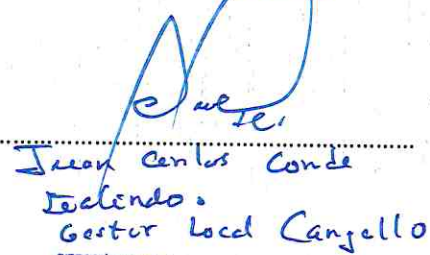 Juan Carlos Conde
Gestor Local Cangallo